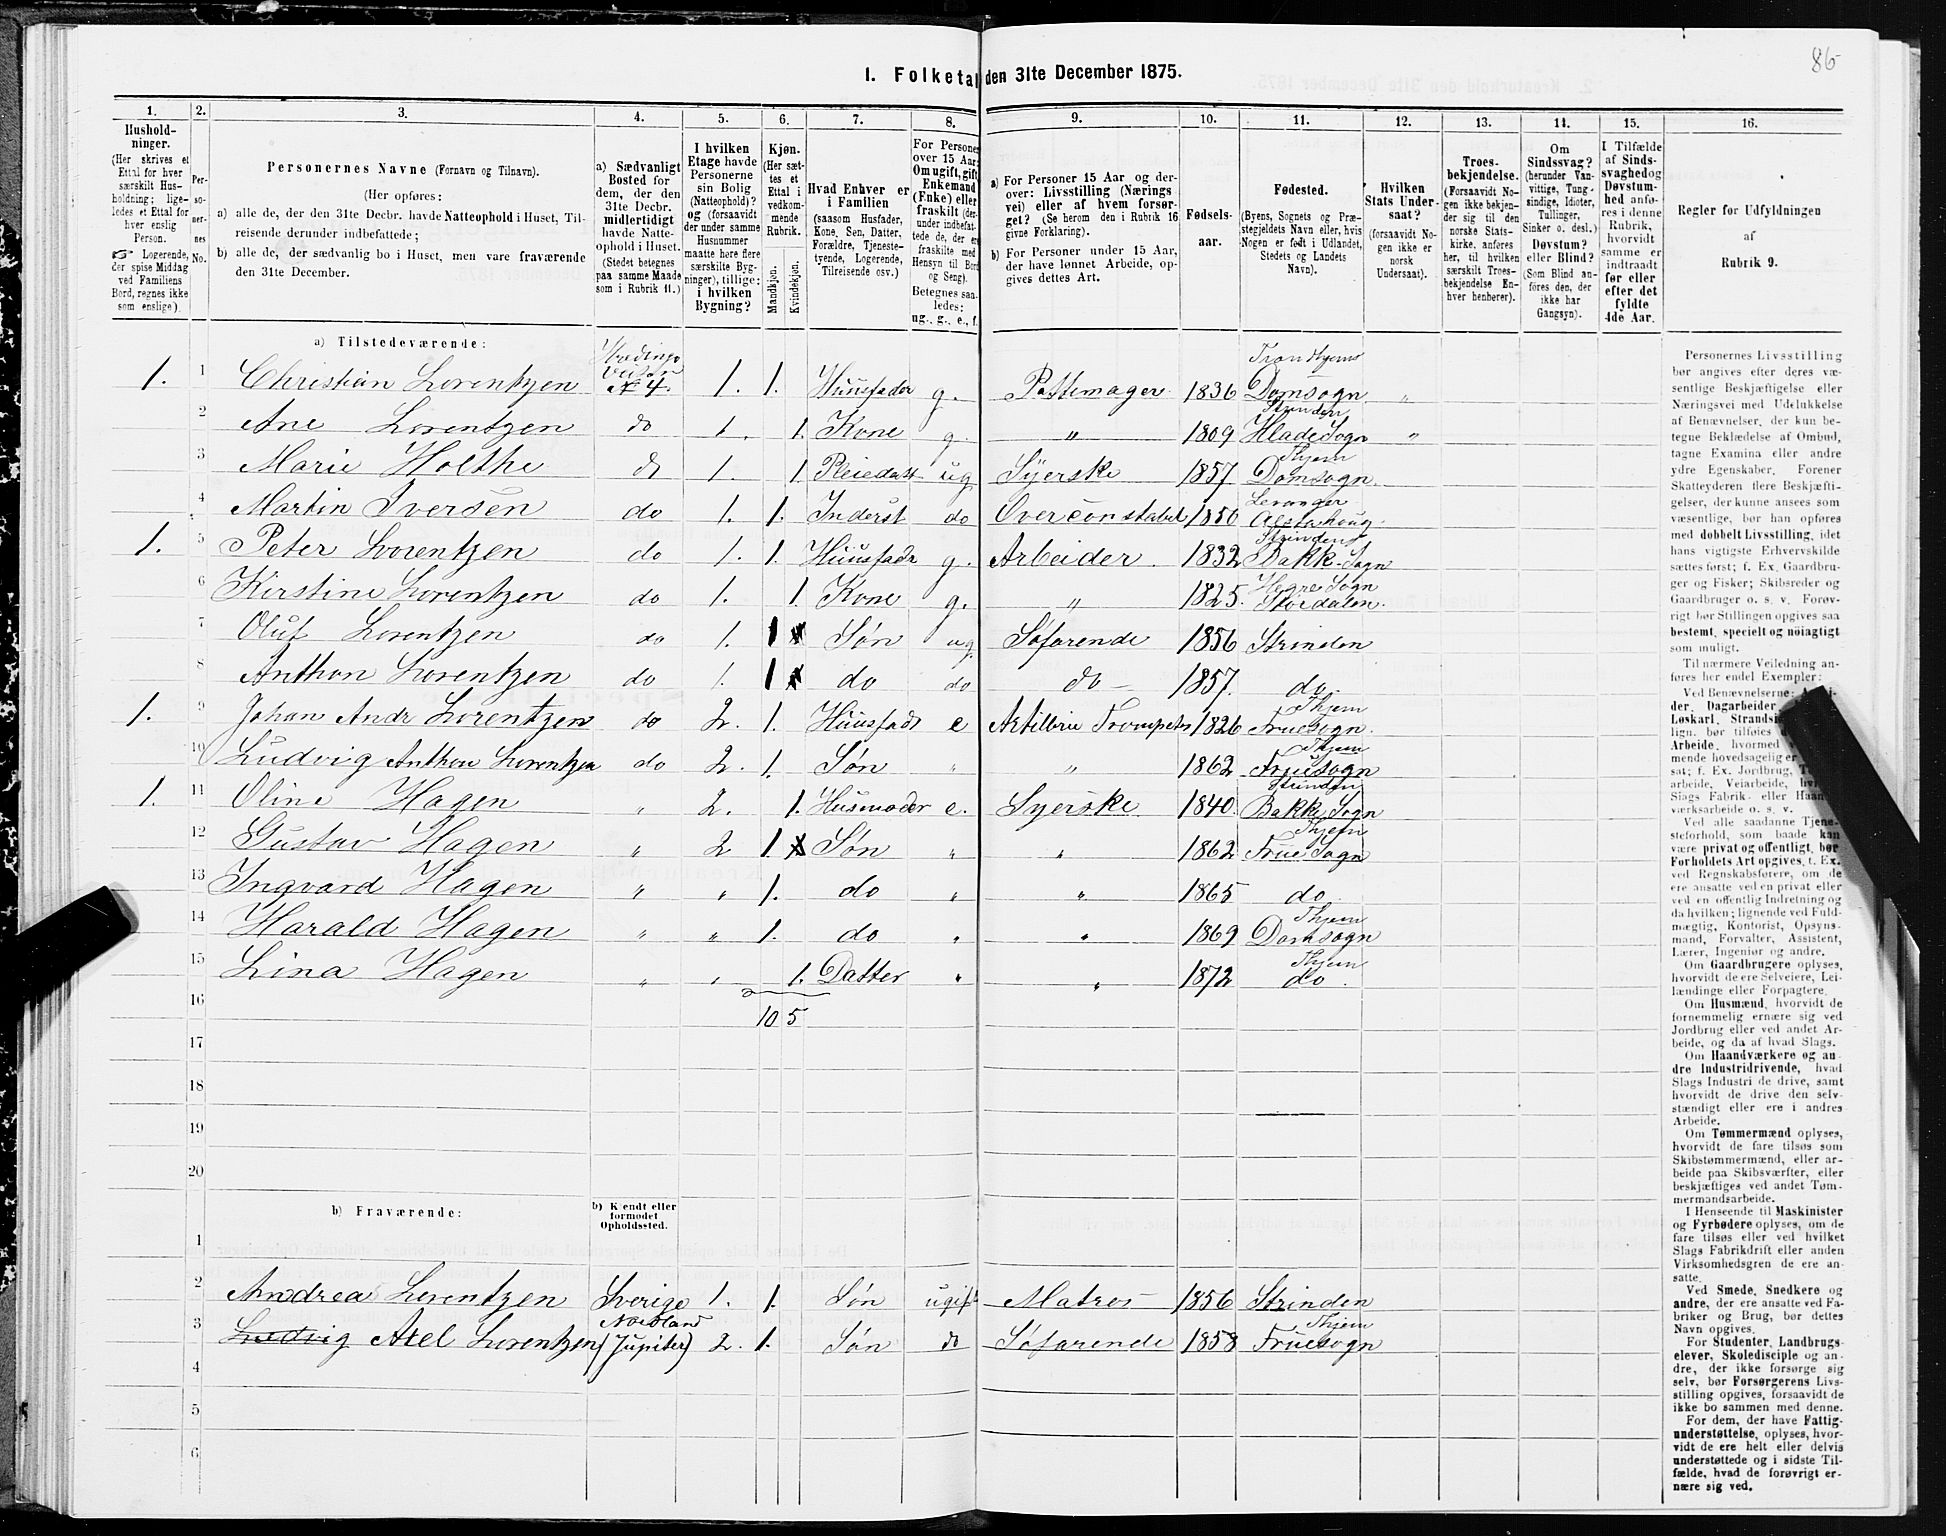 86
1. Folketal den 31te December 1875.
1. 2. 3. 4. 5. 6. 7. 8. 9. 10. 11. 12. 13. 14. 15. 16.
Husholdninger.
(Her skrives et
Ettal for hver
særskilt Husholdning;
ligeledes et Ettal for
hver enslig
Person.
Logerende,
der spise Middag
ved Familiens
Bord, regnes ikke
som enslige).
Personernes No.
Personernes Navne (Fornavn og Tilnavn).
(Her opføres:
a) alle de, der den 31te Decbr. havde Natteophold i Huset, Tilreisende derunder indbefattede;
b) alle de, der sædvanlig bo i Huset, men vare fraværende
den 31te December.
a) Sædvanligt
Bosted for
dem, der den
31te Decbr.
midlertidigt
havde Natteophold i Huset.
(Stedet betegnes
paa samme Maade
som i Rubrik 11.)
I hvilken
Etage havde
Personerne
sin Bolig
(Natteophold)?
og (forsaavidt
der under samme
Husnummer
maatte høre flere
særskilte Bygninger), tillige:
i hvilken
Bygning?
Kjøn.
(Her sættes et
Ettal i
vedkommende
Rubrik.
Mandkjøn.
Kvindekjøn.
Hvad Enhver er
i Familien
(saasom Husfader,
Kone, Søn, Datter,
Forældre, Tjenestetyende, Logerende,
Tilreisende osv.)
For Personer
over 15 Aar:
Om ugift, gift,
Enkemand
(Enke) eller
fraskilt
Betegnes saaledes:
ug., g., e., f.
a) For Personer 15 Aar og derover: Livsstilling (Næringsvei) eller af hvem forsørget? (Se herom den i Rubrik 16
givne Forklaring).
b) For Personer under 15 Aar,
der have lønnet Arbeide, opgives dettes Art.
Fødselsaar.
Fødested.
(Byens, Sognets og Præstegjeldets Navn eller, hvis
Nogen er født i Udlandet,
Stedets og Landets
Navn).
Hvilken
Stats Undersaat?
(forsaavidt Nogen ikke er
norsk
Undersaat).
Troesbekjendelse.
(Forsaavidt Nogen ikke bekjender sig til den
norske Statskirke, anføres
her, til hvilken
særskilt Troesbekjendelse Enhver henhører).
Om
Sindssvag?
(herunder Vanvittige, Tungsindige, Idioter,
Tullinger,
Sinker o. desl.)
Døvstum?
eller Blind?
(Som Blind anføres den, der
ikke har
Gangsyn).
I Tilfælde
af Sindssvaghed og
Døvstumhed anføres i denne
Rubrik,
hvorvidt
samme er
indtraadt
før eller
efter det
fyldte
4de Aar.
Regler for Udfyldningen
af
Rubrik 9.
a) Tilstedeværende:
1. 1 Christian Lorentzen № 4. 1. 1. Huusfader g. Pottemager 1836 Trondhjems Domsogn "
2 Ane Lorentzen do 1. 1. Kone g. " 1809 Strinden Hlade Sogn "
3 Marie Holthe do 1. 1. Pleiedatt ug Syerske 1857 Thjem Domsogn
4 Martin Iversen do 1. 1. Inderst do Overconstabel 1850 Levanger Alstahoug
1. 5 Peter Lorentzen do 1. 1. Huusfadr g. Arbeider. 1832 Strinden Bakk-Sogn
6 Kirstine Lorentzen do 1. 1. Kone g. " 1825. Hegre Sogn Størdalen.
7 Oluf Lorentzen do 1. 1 Søn ug. Søfarende 1856 Strinden
8 Anthon Lorentzen do 1. 1 do do do - 1857. do.
1. 9 Johan Andr Lorentzen do 2. 1. Huusfadr e Artilleri Trompeter 1826 Thjem Fruesogn.
10 Ludvig Anthon Lorentzen do 2. 1. Søn " " 1862 Thjem Fruesogn
1. 11 Oline Hagen " 2. 1. Husmoder e. Syerske 1840. Strinden Bakke Sogn
12 Gustav Hagen " 2 1. Søn " " 1862 Thjem Frue Sogn
13 Ingvard Hagen " " 1. do " " 1865 do.
14 Harald Hagen " " 1. do " " 1869 Thjem Domsogn
15 Lina Hagen " " 1. Datter " " 1872 Thjem do.
16 10 5
17
18
19
20
b) Fraværende:
b) Kjendt eller
formodet
Opholdssted.
1
2 Andrea Lorentzen Sverige 1. 1. Søn ugift Matros 1856 Strinden
3 Ludvig Axel Lorentzen Nordland (Jupiter) 2. 1. Søn do Søfarende 1858 Thjem Fruesogn
4
5
6
Personernes Livsstilling
bør angives efter deres væsentlige Beskjæftigelse eller
Næringsvei med Udelukkelse
af Benævnelser, der kun betegne Beklædelse af Ombud,
tagne Examina eller andre
ydre Egenskaber. Forener
Skatteyderen flere Beskjæftigelser, der kunne ansees som
væsentlige, bør han opføres
med dobbelt Livsstilling, idet
hans vigtigste Erhvervskilde
sættes først; f. Ex. Gaardbruger og Fisker; Skibsreder og
Gaardbruger o. s. v. Forøvrigt bør Stillingen opgives saa
bestemt, specielt og nøiagtigt
som muligt.
Til nærmere Veiledning anføres her endel Exempler:
Ved Benævnelserne:
der, Dagarbeider
Løskarl,
lign. bør tilføies
Arbeide, hvormed
mende hovedsagelig er
sat; f. Ex. Jordbrug,
arbeide, Veiarbeide,
Slags Fabrik- eller Haandværksarbeide o. s. v.
Ved alle saadanne Tjenesteforhold, som baade kan
være privat og offentligt, bør
Forholdets Art opgives, f. Ex.
ved Regnskabsførere, om de
ere ansatte ved en privat eller
ved en offentlig Indretning og
da hvilken; lignende ved Fuldmægtig, Kontorist, Opsynsmand, Forvalter, Assistent,
Lærer, Ingeniør og andre.
Om Gaardbrugere oplyses,
hvorvidt de ere Selveiere, Leilændinge eller Forpagtere.
Om Husmænd, hvorvidt de
fornemmelig ernære sig ved
Jordbrug eller ved andet Arbeide, og da af hvad Slags.
Om Haandværkere og andre Industridrivende, hvad
Slags Industri de drive, samt
hvorvidt de drive den selvstændigt eller ere i andres
Arbeide.
Om Tømmermænd oplyses,
hvorvidt de fare tilsøs som
Skibstømmermænd, eller arbeide paa Skibsværfter, eller
beskjæftiges ved andet Tømmermandsarbeide.
I Henseende til Maskinister
og Fyrbødere oplyses, om de
fare tilsøs eller ved hvilket
Slags Fabrikdrift eller anden
Virksomhedsgren de ere ansatte.
Ved Smede, Snedkere og
andre, der ere ansatte ved Fabriker og Brug, bør dettes
Navn opgives.
For Studenter, Landbrugselever, Skoledisciple og andre, der ikke forsørge sig
selv, bør Forsørgerens Livsstilling opgives, forsaavidt de
ikke bo sammen med denne.
For dem, der have Fattigunderstøttelse, oplyses, hvorvidt de ere helt eller delvis
understøttede og i sidste Tilfælde, hvad de forøvrigt ernære sig ved.